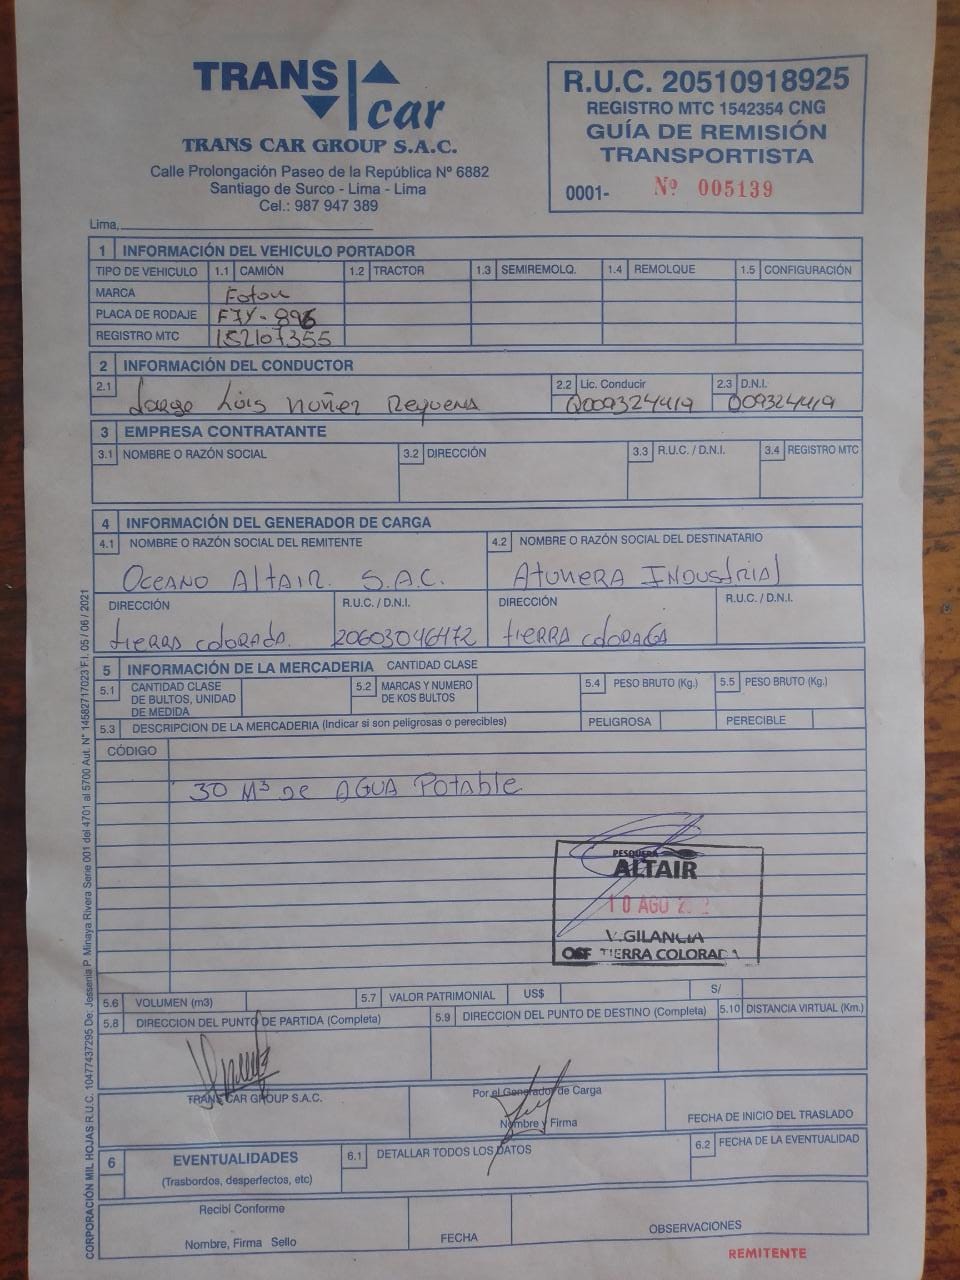 TRANS car
TRANS CAR GROUP S.A.C.
Calle Prolongación Paseo de la República Nº 6882
Santiago de Surco - Lima - Lima
Cel.: 987 947 389
R.U.C. 20510918925
REGISTRO MTC 1542354 CNG
GUÍA DE REMISIÓN
TRANSPORTISTA
0001- Nº 005139
Lima,
1 INFORMACIÓN DEL VEHICULO PORTADOR
TIPO DE VEHICULO 1.1 CAMIÓN 1.2 TRACTOR 1.3 SEMIREMOLQ. 1.4 REMOLQUE 1.5 CONFIGURACIÓN
MARCA Foton
PLACA DE RODAJE F7Y-896
REGISTRO MTC 152107355
2 INFORMACIÓN DEL CONDUCTOR
2.1 Jorge Luis Nuñez Requena 2.2 Lic. Conducir Q009324419 2.3 D.N.I. 009324419
3 EMPRESA CONTRATANTE
3.1 NOMBRE O RAZÓN SOCIAL 3.2 DIRECCIÓN 3.3 R.U.C. / D.N.I. 3.4 REGISTRO MTC
4 INFORMACIÓN DEL GENERADOR DE CARGA
4.1 NOMBRE O RAZÓN SOCIAL DEL REMITENTE 4.2 NOMBRE O RAZÓN SOCIAL DEL DESTINATARIO
Oceano Altair S.A.C. Atunera Industrial
DIRECCIÓN R.U.C. / D.N.I. DIRECCIÓN R.U.C. / D.N.I.
tierra colorada. 20603046472 tierra colorada
5 INFORMACIÓN DE LA MERCADERIA CANTIDAD CLASE
5.1 CANTIDAD CLASE DE BULTOS, UNIDAD DE MEDIDA 5.2 MARCAS Y NUMERO DE KOS BULTOS 5.4 PESO BRUTO (Kg.) 5.5 PESO BRUTO (Kg.)
5.3 DESCRIPCION DE LA MERCADERIA (Indicar si son peligrosas o perecibles) PELIGROSA PERECIBLE
CÓDIGO
30 M³ de AGUA Potable
PESQUERA
ALTAIR
10 AGO
VIGILANCIA
TIERRA COLORADA
5.6 VOLUMEN (m3) 5.7 VALOR PATRIMONIAL US$ S/
5.8 DIRECCION DEL PUNTO DE PARTIDA (Completa) 5.9 DIRECCION DEL PUNTO DE DESTINO (Completa) 5.10 DISTANCIA VIRTUAL (Km.)
TRANS CAR GROUP S.A.C. Por el Generador de Carga
Nombre y Firma FECHA DE INICIO DEL TRASLADO
6 EVENTUALIDADES 6.1 DETALLAR TODOS LOS DATOS 6.2 FECHA DE LA EVENTUALIDAD
(Trasbordos, desperfectos, etc)
Recibí Conforme
Nombre, Firma Sello FECHA OBSERVACIONES
REMITENTE
CORPORACIÓN MIL HOJAS R.U.C. 10477437295 De: Jessenia P. Minaya Rivera Serie 001 del 4701 al 5700 Aut. N° 14582717023 F.I. 05 / 06 / 2021